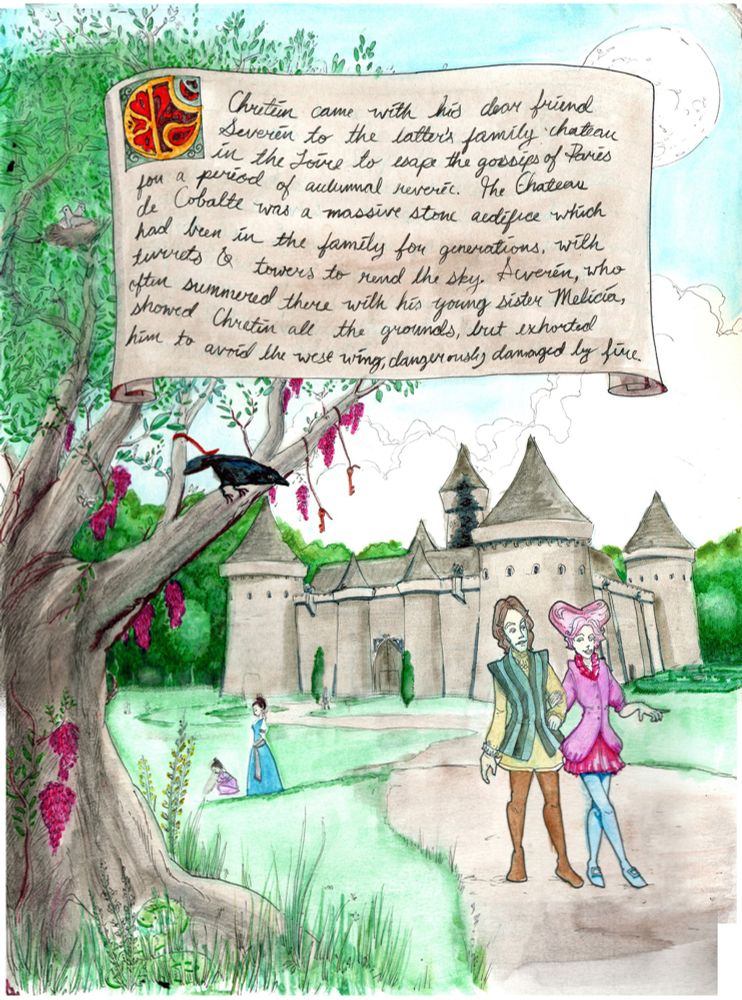 Chretien came with his dear friend
Severin to the latter's family chateau
in the Loire to esape the gossips of Paris
for a period of autumnal reverie. The Chateau
de Cobalte was a massive stone aedifice which
had been in the family for generations, with
turrets & towers to rend the sky. Severin, who
often summered there with his young sister Melicia,
showed Chretin all the grounds, but exhorted
him to avoid the west wing, dangerously damaged by fire.